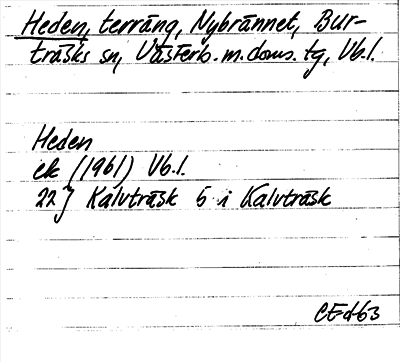 Heden, terräng, Nybrännet, Bur-
träsks sn, Västerb. m. doms. tg, Vb.l.
Heden
ek (1961) Vb.l.
22J Kalvträsk 5 i Kalvträsk
CEd63